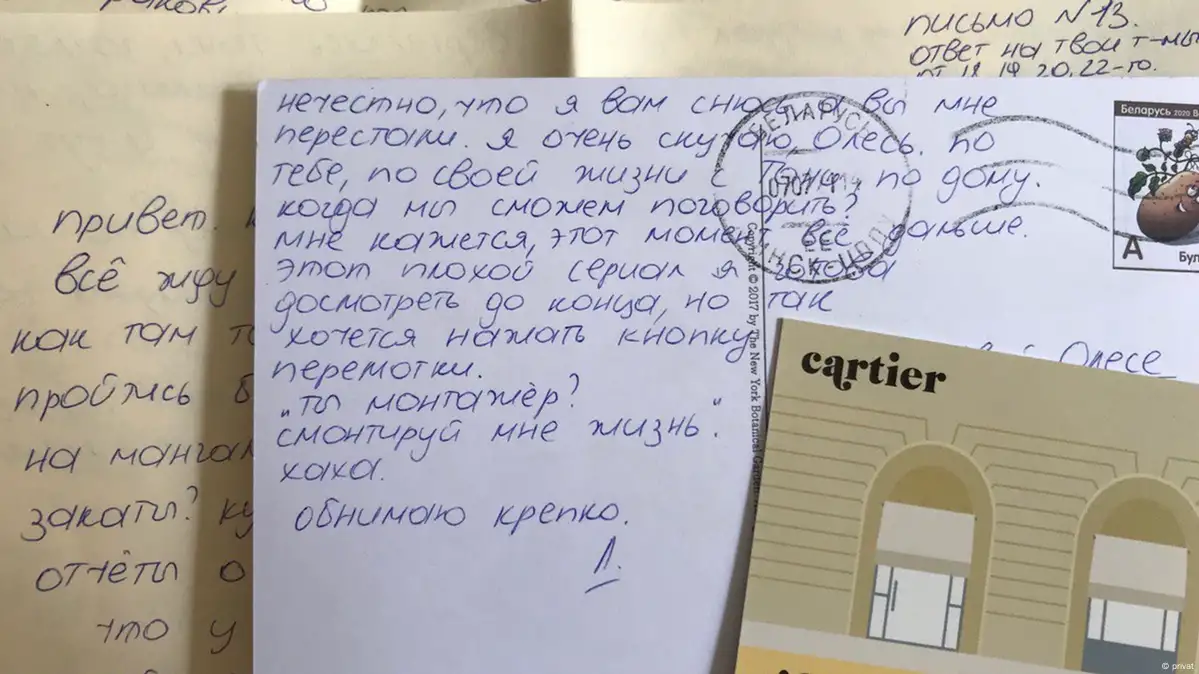 письмо №13.
ответ на твои т-мы
от 18, 19, 20, 22-го.
нечестно, что я вам снюсь, а вы мне
перестали. я очень скучаю, Олесь. по
тебе, по своей жизни с по дому.
когда мы сможем поговорить?
мне кажется, этот момент всё дальше.
этот плохой сериал я готова
досмотреть до конца, но так
хочется нажать кнопку
перемотки.
„ты монтажёр?
смонтируй мне жизнь".
хаха.
обнимаю крепко.
Л.
привет.
всё жду
как там
пройтись
на мангал
закаты?
отчёты о
что у
БЕЛАРУСЬ
МИНСК
Беларусь 2020
A
Бул
Copyright © 2017 by The New York Botanical Garden
Олесе
cartier
© privat